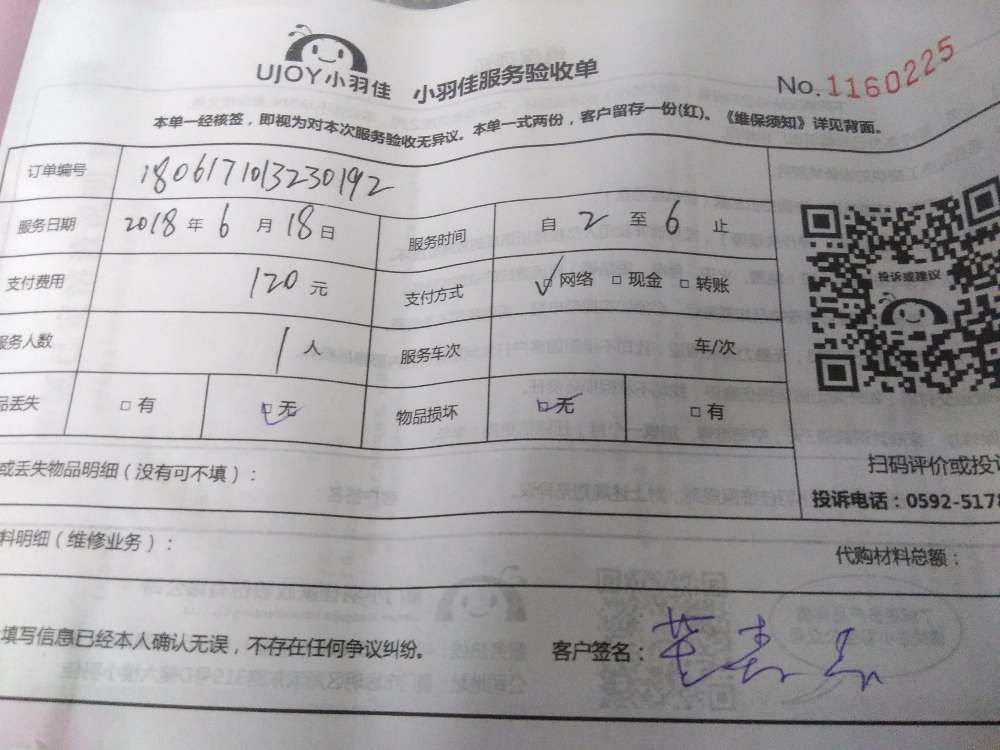 UJOY小羽佳 小羽佳服务验收单 No.1160225
本单一经核签，即视为对本次服务验收无异议。本单一式两份，客户留存一份(红)。《维保须知》详见背面。
订单编号 180617101323019２
服务日期 2018 年 6 月 18 日 服务时间 自 2 至 6 止
支付费用 120 元 支付方式 □网络 □现金 □转账
服务人数 1 人 服务车次 车/次
品丢失 □有 □无 物品损坏 □无 □有
投诉或建议
或丢失物品明细（没有可不填）：
扫码评价或投
投诉电话：0592-5178
料明细（维修业务）： 代购材料总额：
填写信息已经本人确认无误，不存在任何争议纠纷。 客户签名：